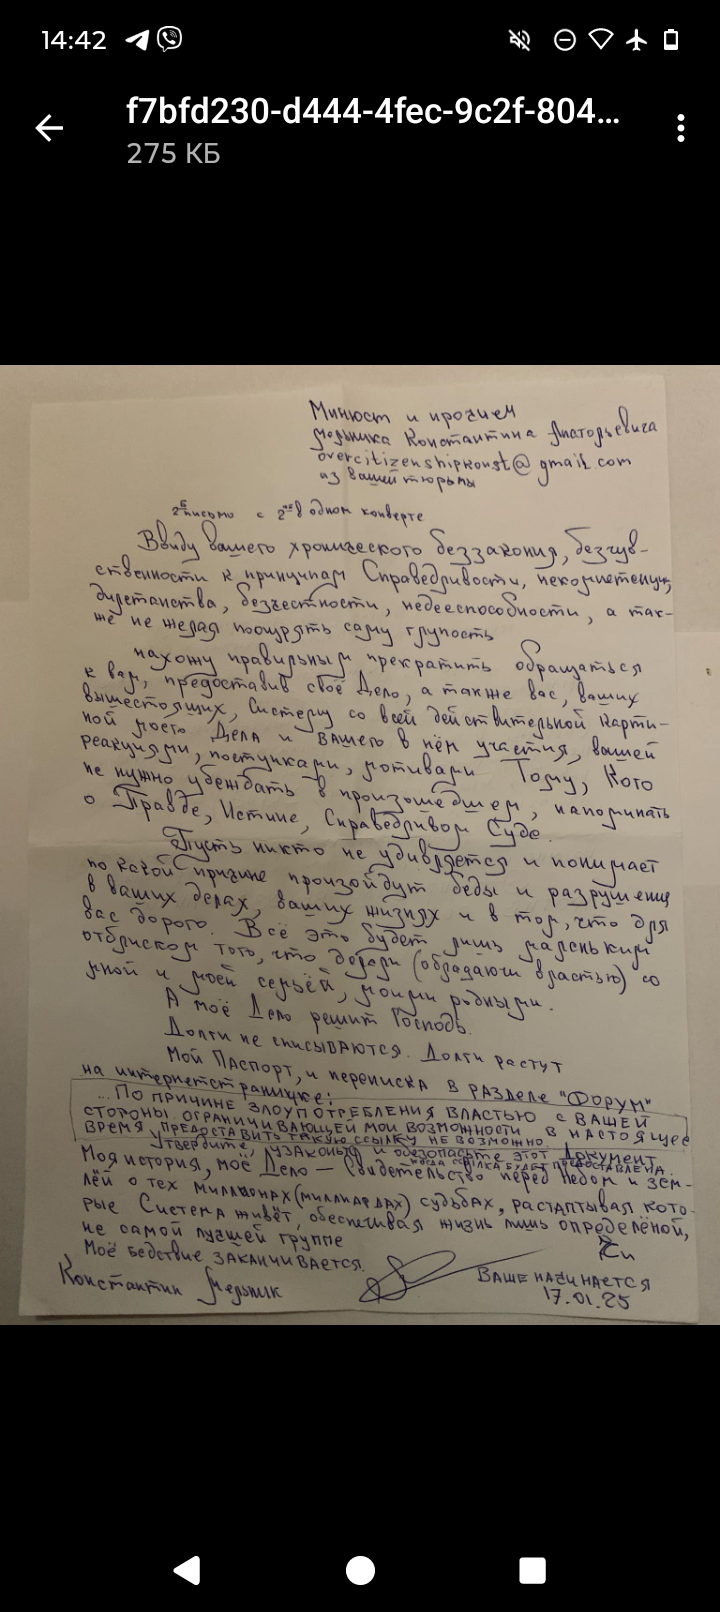 14:42
f7bfd230-d444-4fec-9c2f-804...
275 КБ
Минюст и прочием
Мельника Константина Анатольевича
overcitizenshipkonst@gmail.com
из вашей тюрьмы
2е письмо с 2мя в одном конверте
Ввиду вашего хронического беззакония, безчув-
ственности к принципам Справедливости, некомпетенции,
дилетанства, безчестности, недееспособности, а так-
же не желая поощрять саму глупость
нахожу правильным прекратить обращаться
к вам, предоставив своё Дело, а также вас, ваших
вышестоящих, Систему со всей действительной карти-
ной моего Дела и вашего в нём участия, вашей
реакциями, поступками, мотивами Тому, Кого
не нужно убеждать в произошедшем, напоминать
о Правде, Истине, Справедливом Суде.
Пусть никто не удивляется и понимает
по какой причине произойдут беды и разрушения
в ваших делах, ваших жизнях и в том, что для
вас дорого. Всё это будет лишь маленьким
отблиском того, что делали (обладаючи властью) со
мной и моей семьёй, моими родными.
А моё Дело решит Господь.
Долги не списываются. Долги растут
Мой Паспорт, и переписка в разделе "Форум"
на интернетстраничке:
...По причине злоупотребления властью с вашей
стороны ограничивающей мои возможности в настоящее
время предоставить такую ссылку не возможно.
Утвердите, узаконьте и обезопасьте этот Документ
когда ссылка будет предоставлена.
Моя история, моё Дело – Свидетельство перед Небом и зем-
лёй о тех миллионах (миллиардах) судьбах, растаптывая кото-
рые Система живёт, обеспечивая жизнь лишь определёной,
не самой лучшей группе
Моё бедствие заканчивается.
Ваше начинается
Константин Мельник
17.01.25